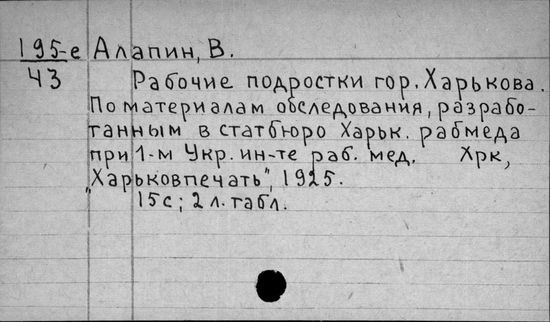 195-е Алапин, В.
43 Рабочие подростки гор. Харькова.
По материалам обследования, разрабо-
танным в статбюро Харьк. рабмеда
при 1-м Укр. ин-те раб. мед. Хрк,
„Харьковпечать", 1925.
15с; 2 л. табл.